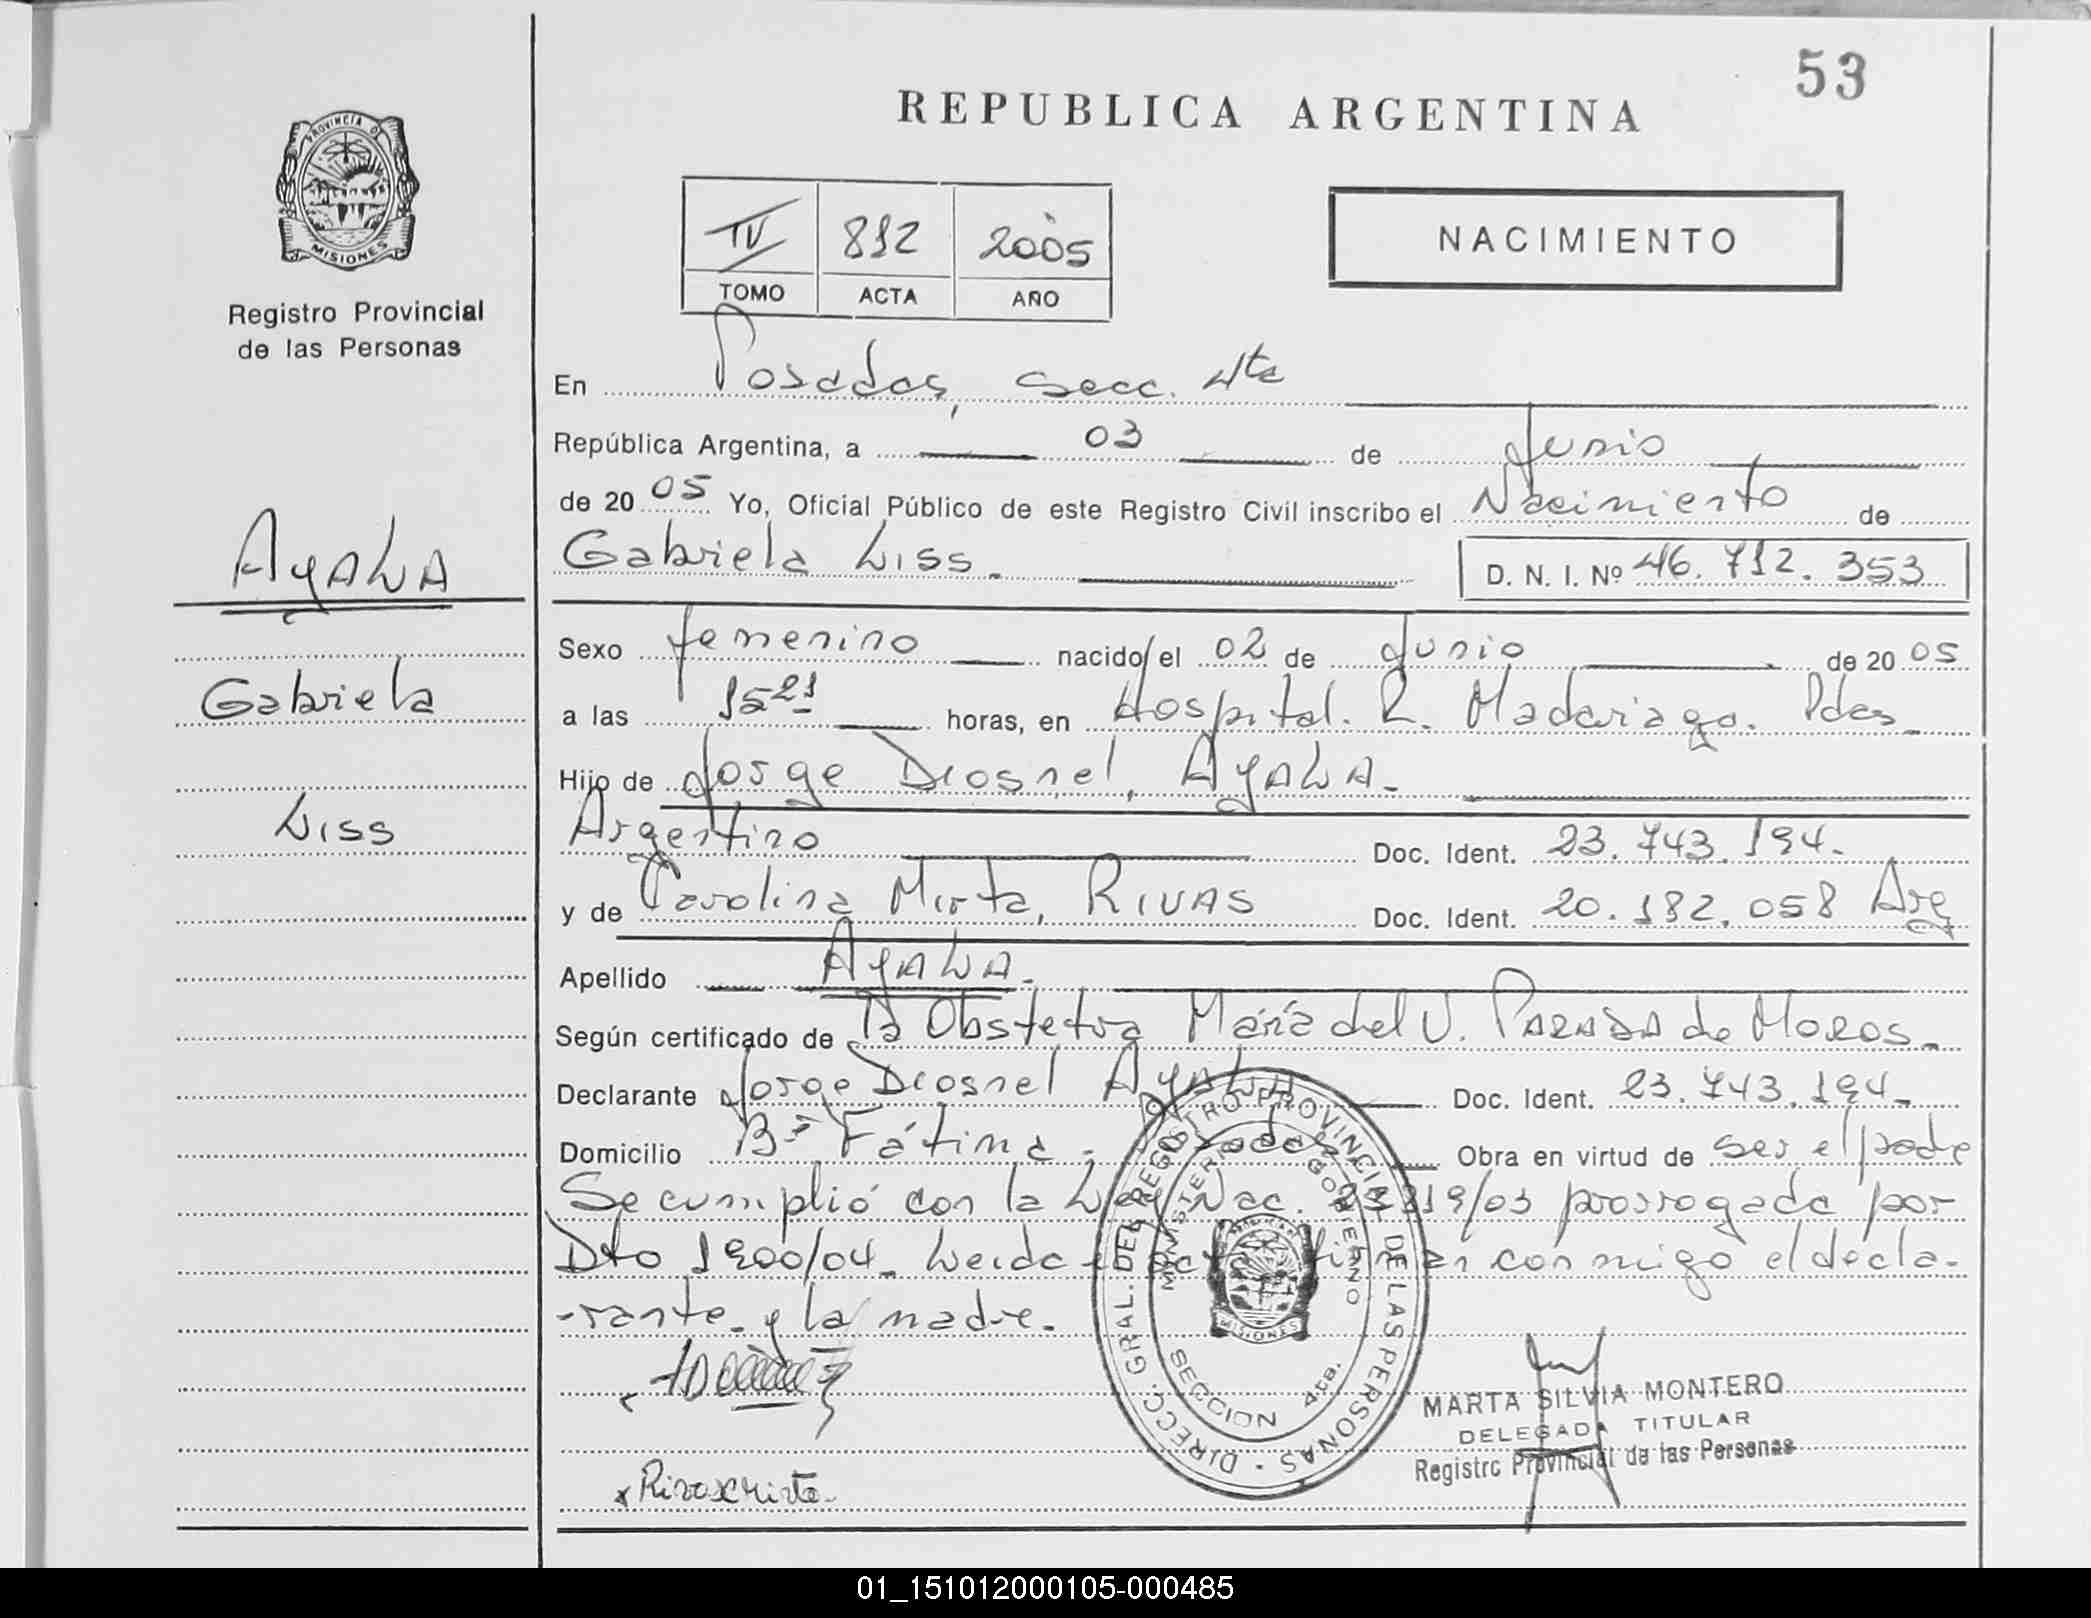 53
REPUBLICA ARGENTINA
PROVINCIA DE
MISIONES
Registro Provincial
de las Personas
IV 812 2005
TOMO ACTA AÑO
NACIMIENTO
En Posadas, Secc. 4ta
República Argentina, a 03 de Junio
de 2005 Yo, Oficial Público de este Registro Civil inscribo el Nacimiento de
Gabriela Liss. D. N. I. Nº 46.712.353
AYALA
Gabriela
Liss
Sexo femenino nacido/el 02 de Junio de 2005
a las 15 21 horas, en Hospital. R. Madariaga. Pdas
Hijo de Jorge Diosnel, AYALA.
Argentino Doc. Ident. 23.743.194.
y de Carolina Mirta, RIVAS Doc. Ident. 20.182.058 Arg
Apellido AYALA.
Según certificado de la Obstetra María del V. PARADA de MOROS.
Declarante Jorge Diosnel AYALA Doc. Ident. 23.743.194
Domicilio Bº Fátima - Posadas Obra en virtud de ser el padre
Se cumplió con la Ley Nac. 25819/03 prorrogada por
Dto 1900/04. Leida el acta firman conmigo el decla-
-rante y la madre.
DIRECC. GRAL. DEL REGISTRO PROVINCIAL DE LAS PERSONAS
MINISTERIO GOBIERNO
MISIONES
SECCION 4ta.
MARTA SILVIA MONTERO
DELEGADA TITULAR
Registro Provincial de las Personas
01_151012000105-000485